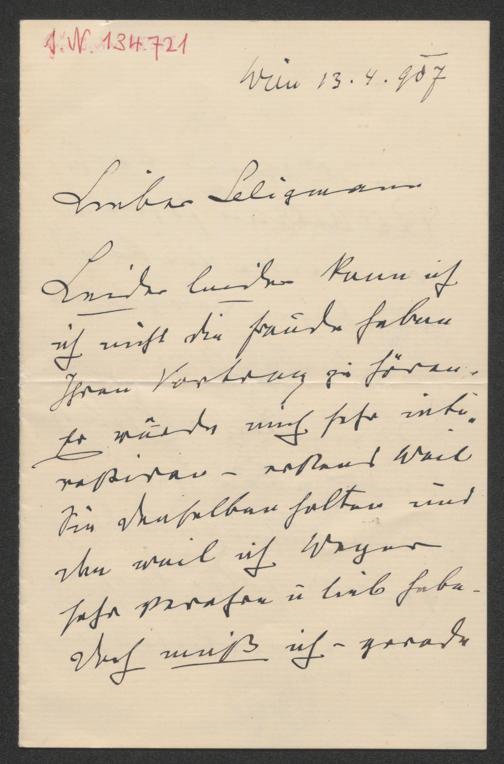 J. N. 134.721
Wien 13. 4. 907
Lieber Seligmann
Leider leider kann ich
ich nicht die Freude haben
Ihren Vortrag zu hören.
Er würde mich sehr inte-
ressiren – erstens weil
Sie denselben halten und
dann weil ich
sehr verehre u lieb habe.
Doch muß ich – gerade